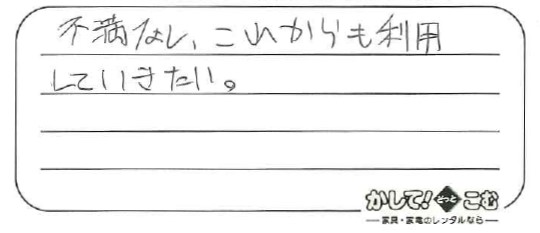 不満なし、これからも利用
していきたい。
かして!どっとこむ
家具・家電のレンタルなら